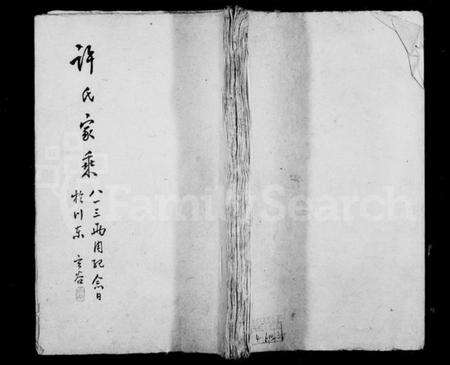 許氏家乘
八一三兩周紀念日
於川東
FamilySearch